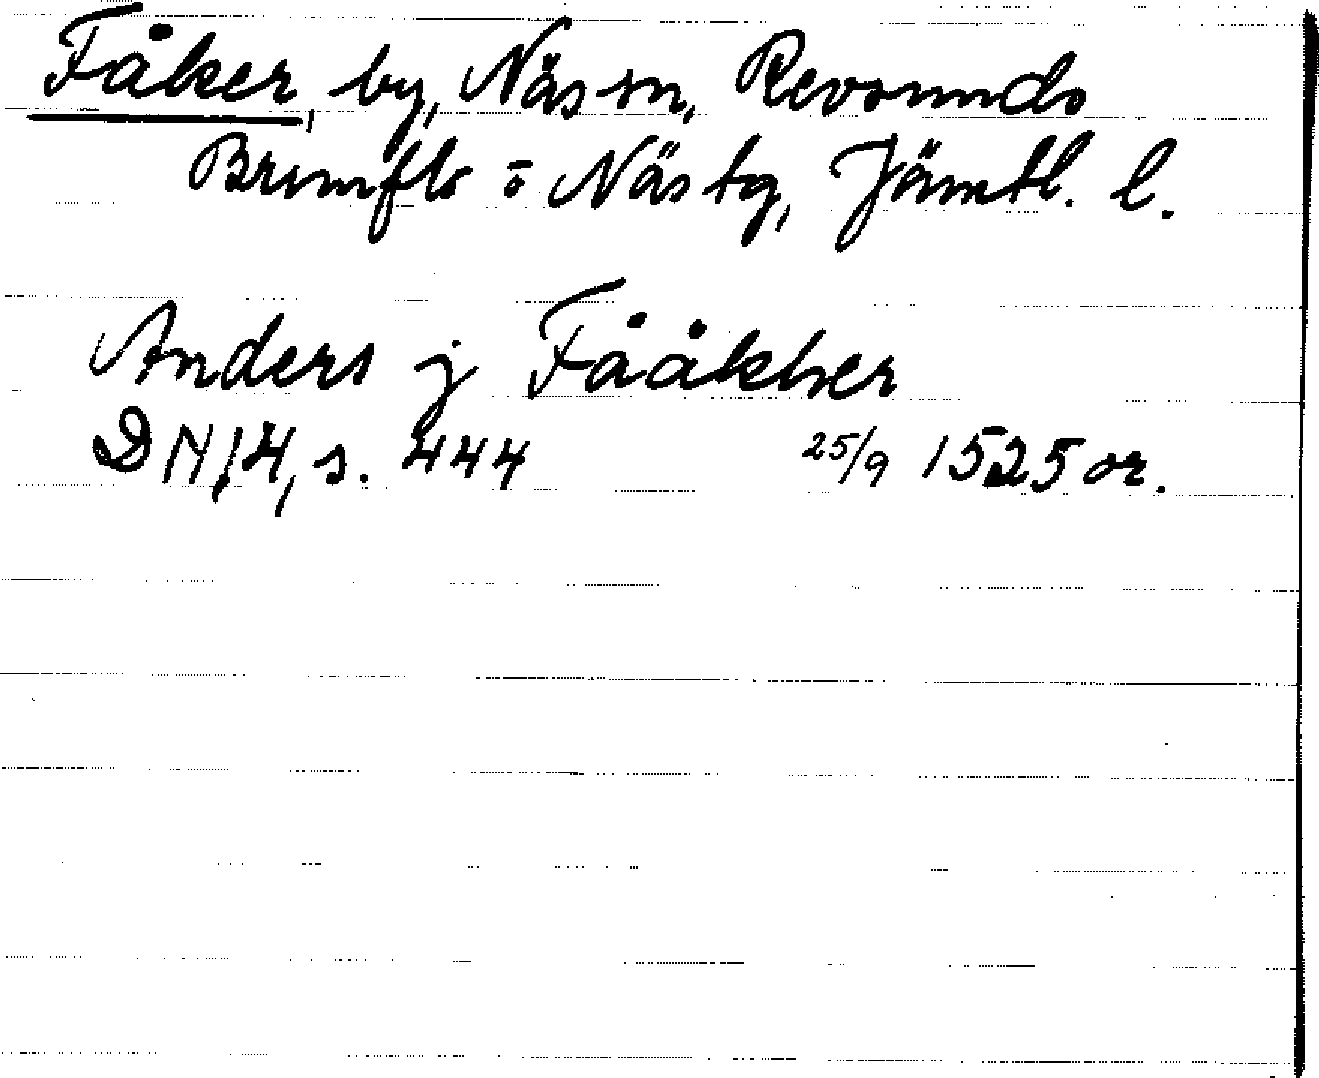 Fåker, by, Näs sn, Revsunds
Brunflo o Näs tg, Jämtl. l.
Anders j Fååkher
DN 14, s. 444 25/9 1525 or.